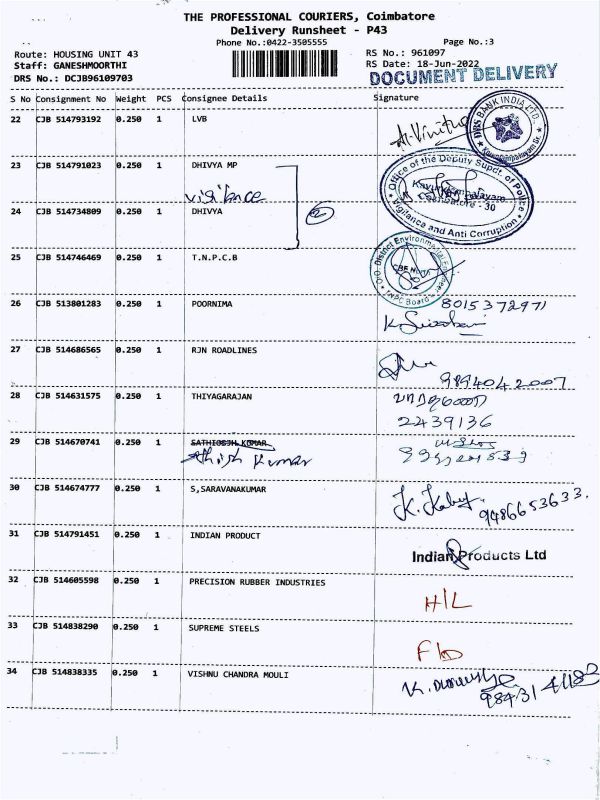 THE PROFESSIONAL COURIERS, Coimbatore
Delivery Runsheet - P43
Phone No.:0422-3505555
Page No.:3
Route: HOUSING UNIT 43
RS No.: 961097
Staff: GANESHMOORTHI
RS Date: 18-Jun-2022
DRS No.: DCJB96109703
DOCUMENT DELIVERY
S No Consignment No Weight PCS Consignee Details Signature
22 CJB 514793192 0.250 1 LVB
DBS BANK INDIA LTD.
23 CJB 514791023 0.250 1 DHIVYA MP
Office of the Deputy Supdt. of Police
Vigilance and Anti Corruption
Coimbatore - 30
vigilance
2
24 CJB 514734809 0.250 1 DHIVYA
25 CJB 514746469 0.250 1 T.N.P.C.B
O/O. District Environmental Engineer
TNPC Board
26 CJB 513801283 0.250 1 POORNIMA 8015372971
27 CJB 514686565 0.250 1 RJN ROADLINES
9894042007
28 CJB 514631575 0.250 1 THIYAGARAJAN
2239136
29 CJB 514670741 0.250 1 SATHIOSJH KUMAR
Kumar
30 CJB 514674777 0.250 1 S,SARAVANAKUMAR
9486653633.
31 CJB 514791451 0.250 1 INDIAN PRODUCT
Indian Products Ltd
32 CJB 514605598 0.250 1 PRECISION RUBBER INDUSTRIES
H/L
33 CJB 514838290 0.250 1 SUPREME STEELS
34 CJB 514838335 0.250 1 VISHNU CHANDRA MOULI